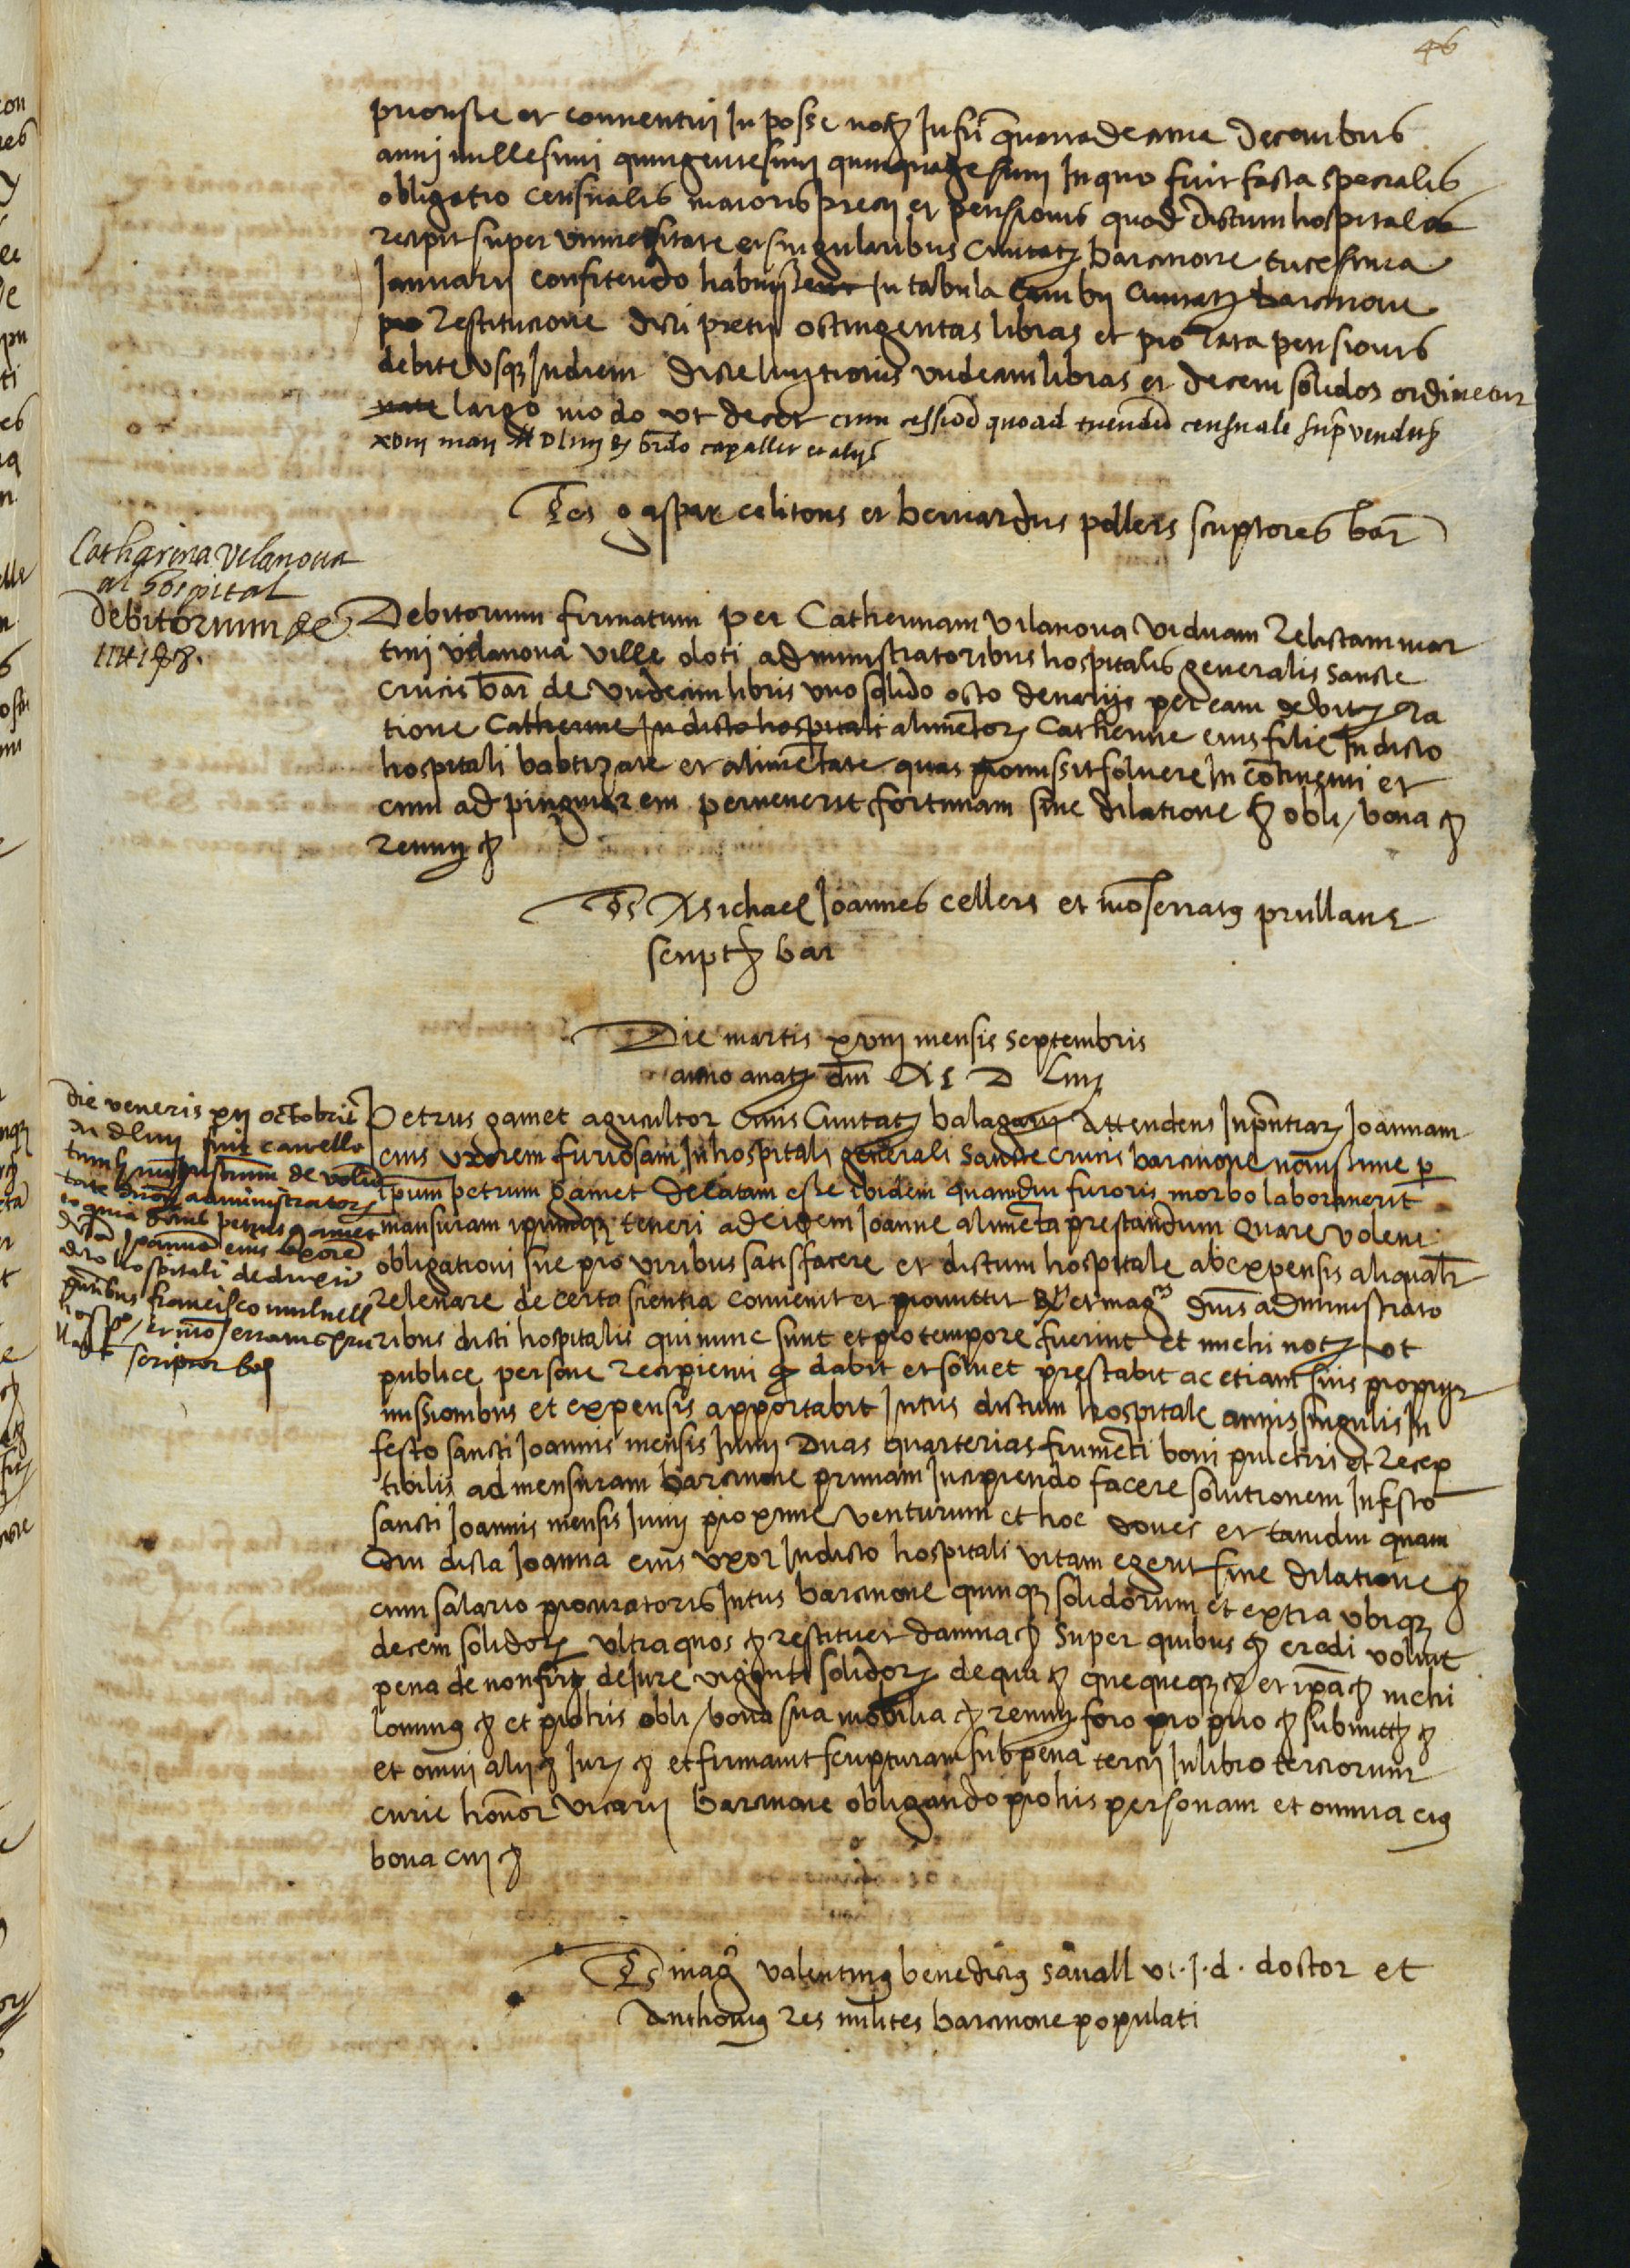 46
priorisse et conventui in posse not(arii) infri quarta decima decembris
anni millesimi quingentesimi quinquagesimi in quo fuit facta specialis
obligatio censualis maioris precii et pensionis quod dictum hospitale
recipit super universitate et singularibus Civitatis barcinone vicesima
Januarii confitendo habuisse in tabula cambii Civitatis barcinone
pro restitucione dicti pretii octingentas libras et pro rata pensionis
debite usq(ue) in diem dicte luitionis undecim libras et decem solidos ordinetur
largo modo ut decet cum cessione quoad tuendum censuale
xviii maii M D Liiii capaller et aliis
Tes gaspar celitons et bernardus pellers scriptores bar
Catharina Vilanova
al hospital
Debitorium de
11 ll 1 s 8.
Debitorium firmatum per Catherinam Vilanova viduam relictam mar
tini vilanova ville oloti administratoribus hospitalis generalis Sancte
crucis bar de undecim libris uno solido octo denariis per eam debitis ra
tione Catherine in dicto hospitali alimentor(um) Catherine eius filie in dicto
hospitali babtizate et alimentate quas promissit solvere in continenti et
cum ad pinguiorem pervenerit fortunam sine dilatione &c obli / bona &c
renuns &c
Tes Michael Joannes cellers et monserratus prullans
script(ores) bar
Die martis xviii mensis Septembris
anno a nat(ivitate) dni M D Liiii
Die veneris xii octobris
M dliiii fuit cancella
tum instrum de volun
tate dnor(um) administrator(um)
eo quia petrus gamet
Joannam eius uxorem
dicto hospitali deduxit
presentibus francisco mulnell
et monserrato pru
llans scriptor bar
Petrus gamet agricultor Civis Civitatis balagarii Attendens in pntiar(um) Joannam
eius uxorem furiosam in hospitali generali Sancte crucis barcinone novissime p(er)
ipsum petrum gamet delatam esse ibidem quamdiu furoris morbo laboraverit
mansuram ipsumq(ue) teneri ad eidem Joanne alimenta prestandum Quare volens
obligationi sue pro viribus satisfacere et dictum hospitale ab expensis aliqualr
relevare de certa scientia convenit et promittit R(dis) et mag(cis) dnis administrato
ribus dicti hospitalis qui nunc sunt et pro tempore fuerint et michi not(ario) ut
publice persone recipienti &c dabit et solvet prestabit ac etiam suis propriis
missionibus et expensis apportabit intus dictum hospitale annis singulis in
festo sancti Joannis mensis Junii Duas quarterias frumenti boni pulchri et recep
tibilis ad mensuram barcinone primam incipiendo facere solutionem in festo
sancti Joannis mensis Junii proxime venturum et hoc donec et tamdiu quam
diu dicta Joanna eius uxor in dicto hospitali vitam egerit sine dilatione &c
cum salario procuratoris intus barcinone quinq(ue) solidorum et extra ubiq(ue)
decem solidor(um) ultra quos &c restituet damna &c Super quibus &c credi voluit
pena de non fir(mando) de Jure viginti solidor(um) de qua &c que queq(ue) &c et ipa &c michi
&c et pro his obli / bona sua mobilia &c renun(ciavit) foro proprio &c submitt(ens) &c
et omni alii &c Juri &c et firmavit scripturam sub pena tercii in libro terciorum
curie honor(abilis) vicarii barcinone obligando pro his personam et omnia eius
bona cui(us) &c
Tes mag(ci) valentinus benedictus savall ut. J. d. doctor et
Anthonius res milites barcinone populati